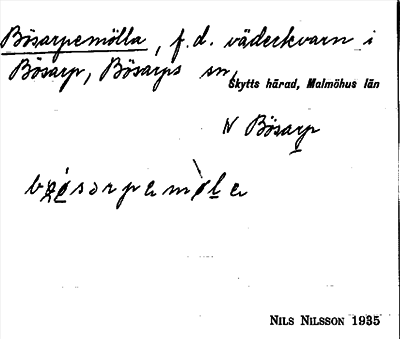 Bösarpemölla, f. d. väderkvarn i
Bösarp, Bösarps sn,
Skytts härad, Malmöhus län
N Bösarp
NILS NILSSON 1935